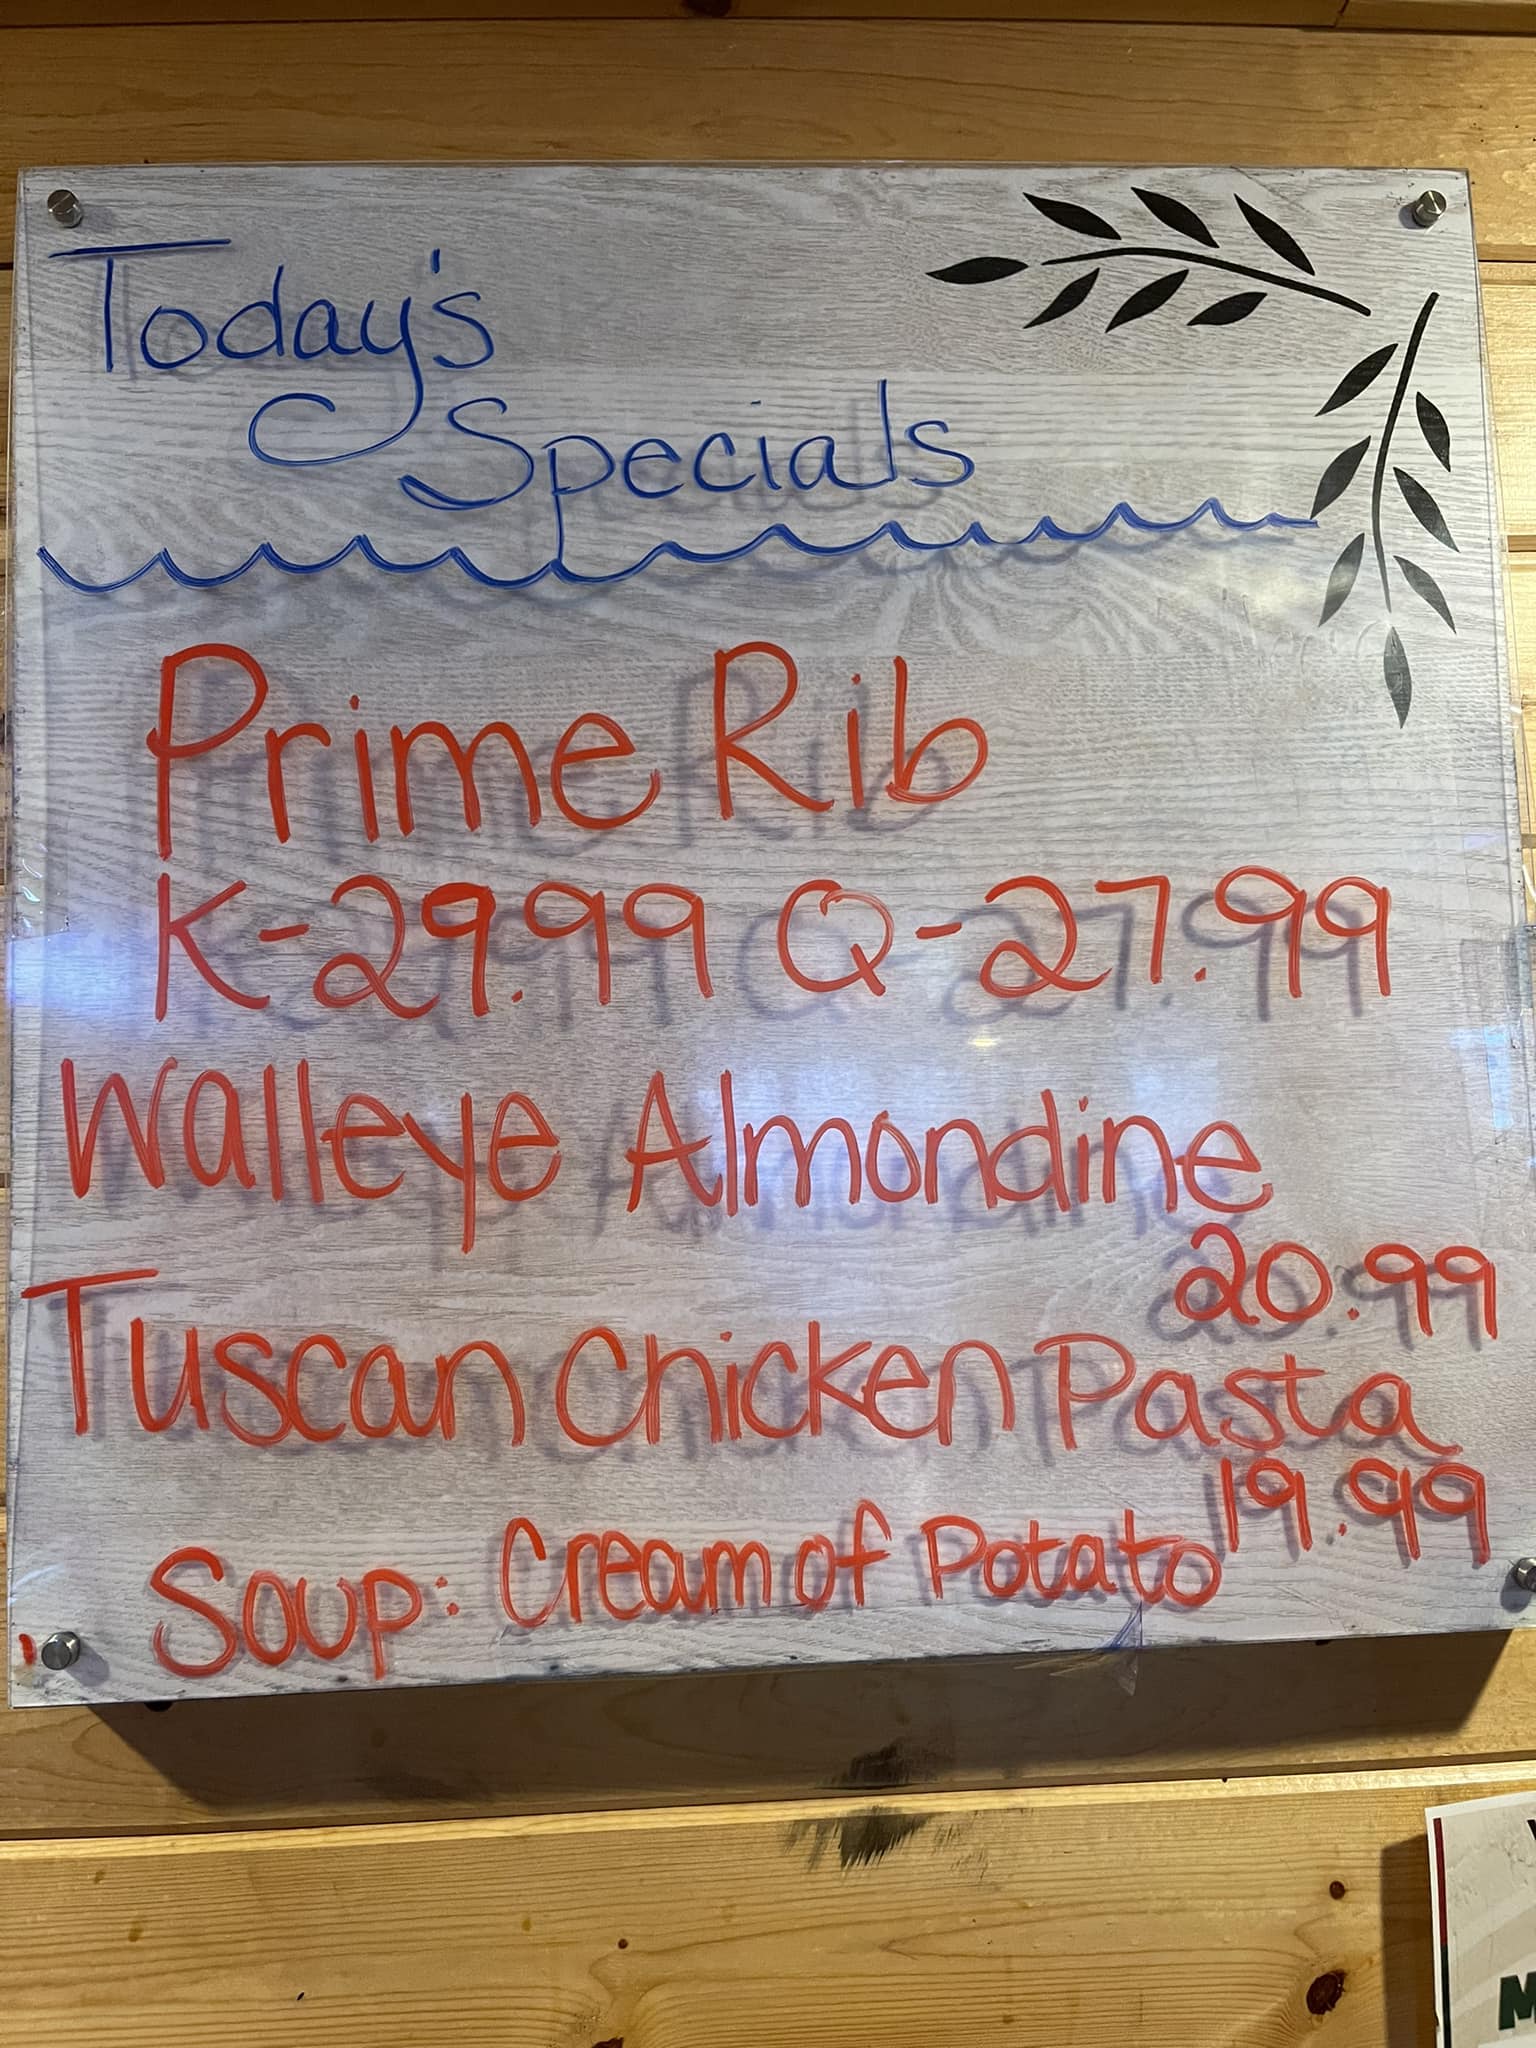 Today's
Specials
Prime Rib
K-29.99 Q-27.99
Walleye Almondine
20.99
Tuscan Chicken Pasta
19.99
Soup: Cream of Potato
M